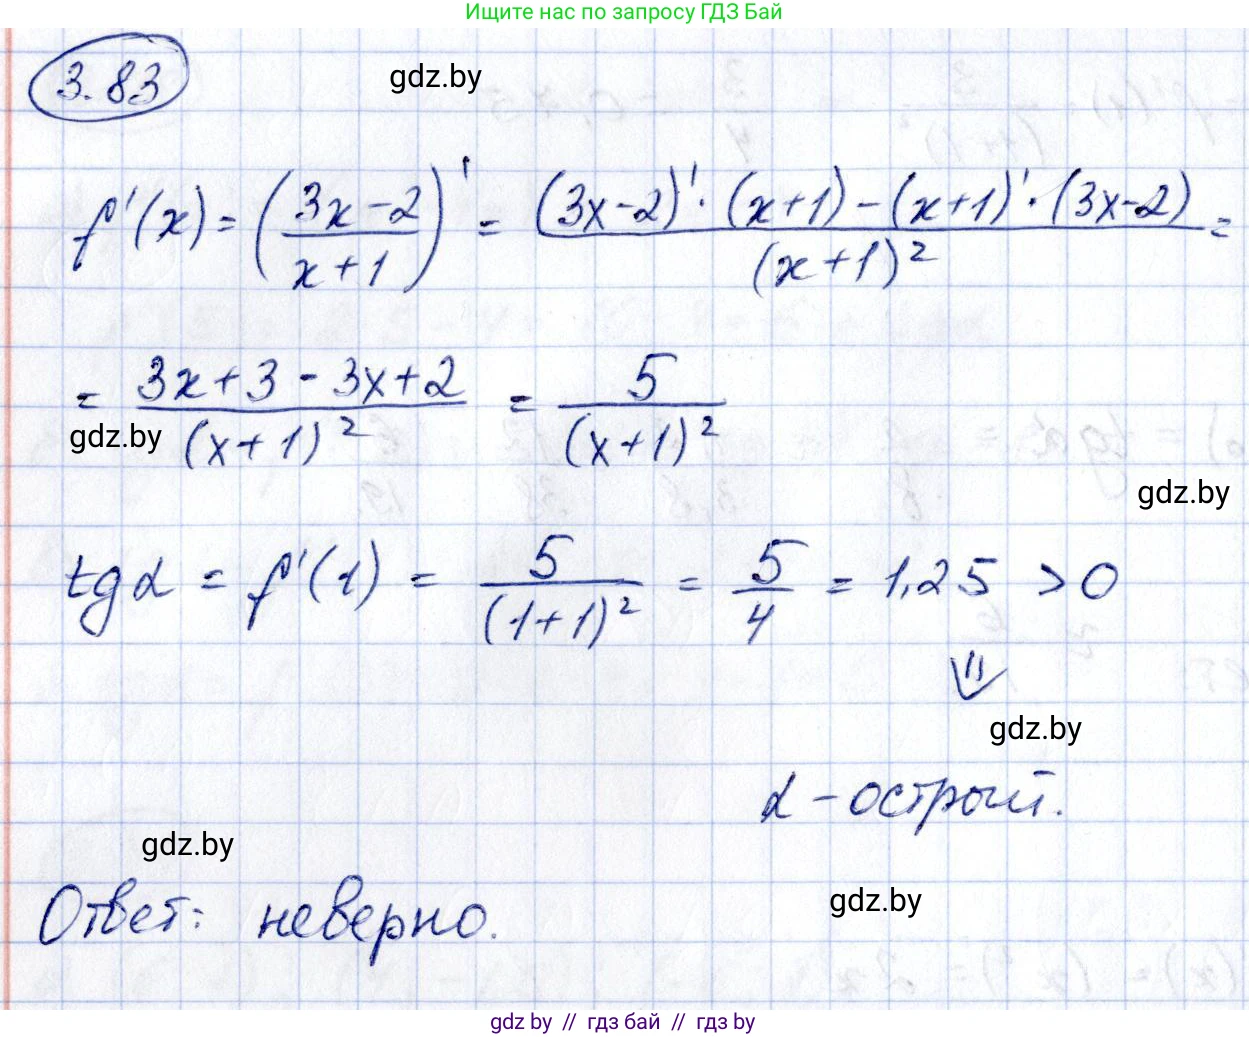 Ищите нас по запросу ГДЗ Бай
3.83
gdz.by
f'(x) = ((3x-2)/(x+1))' = ((3x-2)'·(x+1)-(x+1)'·(3x-2))/(x+1)² =
= (3x+3-3x+2)/(x+1)² = 5/(x+1)²
gdz.by
gdz.by
tgα = f'(1) = 5/(1+1)² = 5/4 = 1,25 > 0
⇓
gdz.by
α - острый.
gdz.by
gdz.by
Ответ: неверно.
gdz by // гдз бай // гдз by